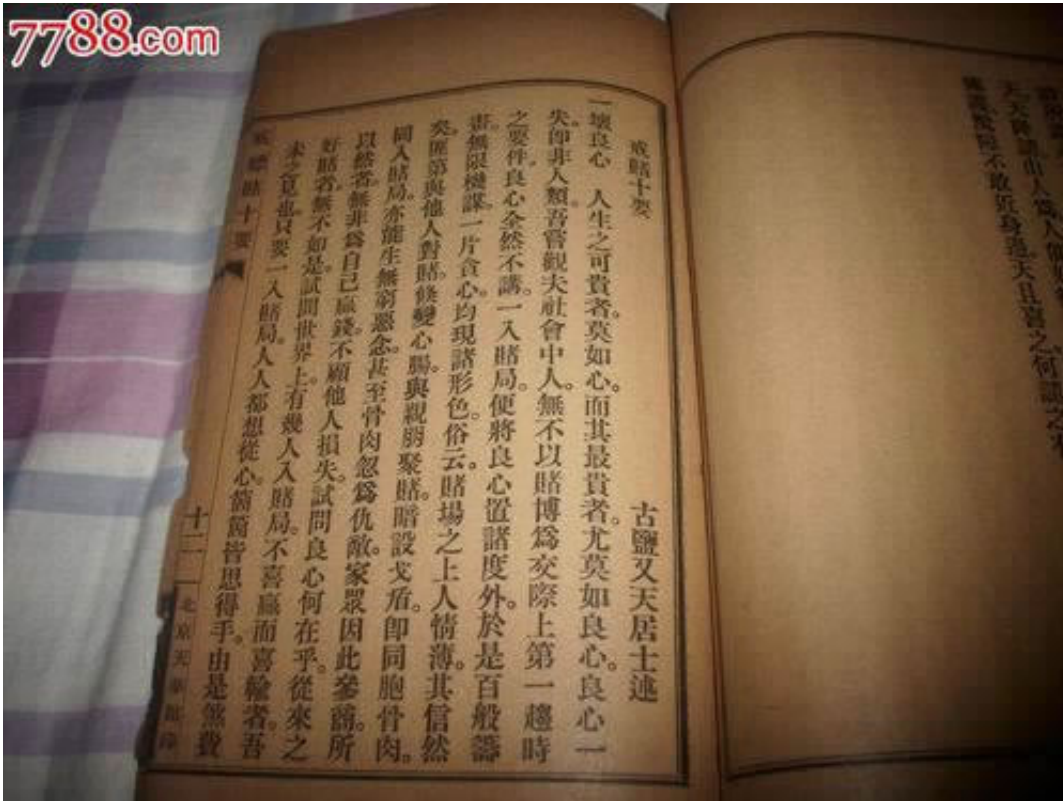 7788.com
天大降諸由人爲人
不敢近身過天且喜之何
戒賭十要
古鹽又天居士述
一壞良心　人生之可貴者。莫如心。而其最貴者。尤莫如良心。良心一
失。卽非人類。吾嘗觀夫社會中人。無不以賭博爲交際上第一趨時
之要件。良心全然不講。一入賭局。便將良心置諸度外。於是百般籌
畫。無限機謀。一片貪心。均現諸形色。俗云。賭場之上人情薄。其信然
矣。匪第與他人對賭。倏變心腸。與親朋聚賭。暗設戈矛。卽同胞骨肉。
同入賭局。亦能生無窮惡念。甚至骨肉忽爲仇敵。家眾因此參商。所
以然者。無非爲自己贏錢。不顧他人損失。試問良心何在乎。從來之
好賭者。無不如是。試問世界上有幾人入賭局。不喜贏而喜輸者。吾
未之見也。只要一入賭局。人人都想從心。箇箇皆思得手。由是煞費
戒賭十要
十二
北京天華館印